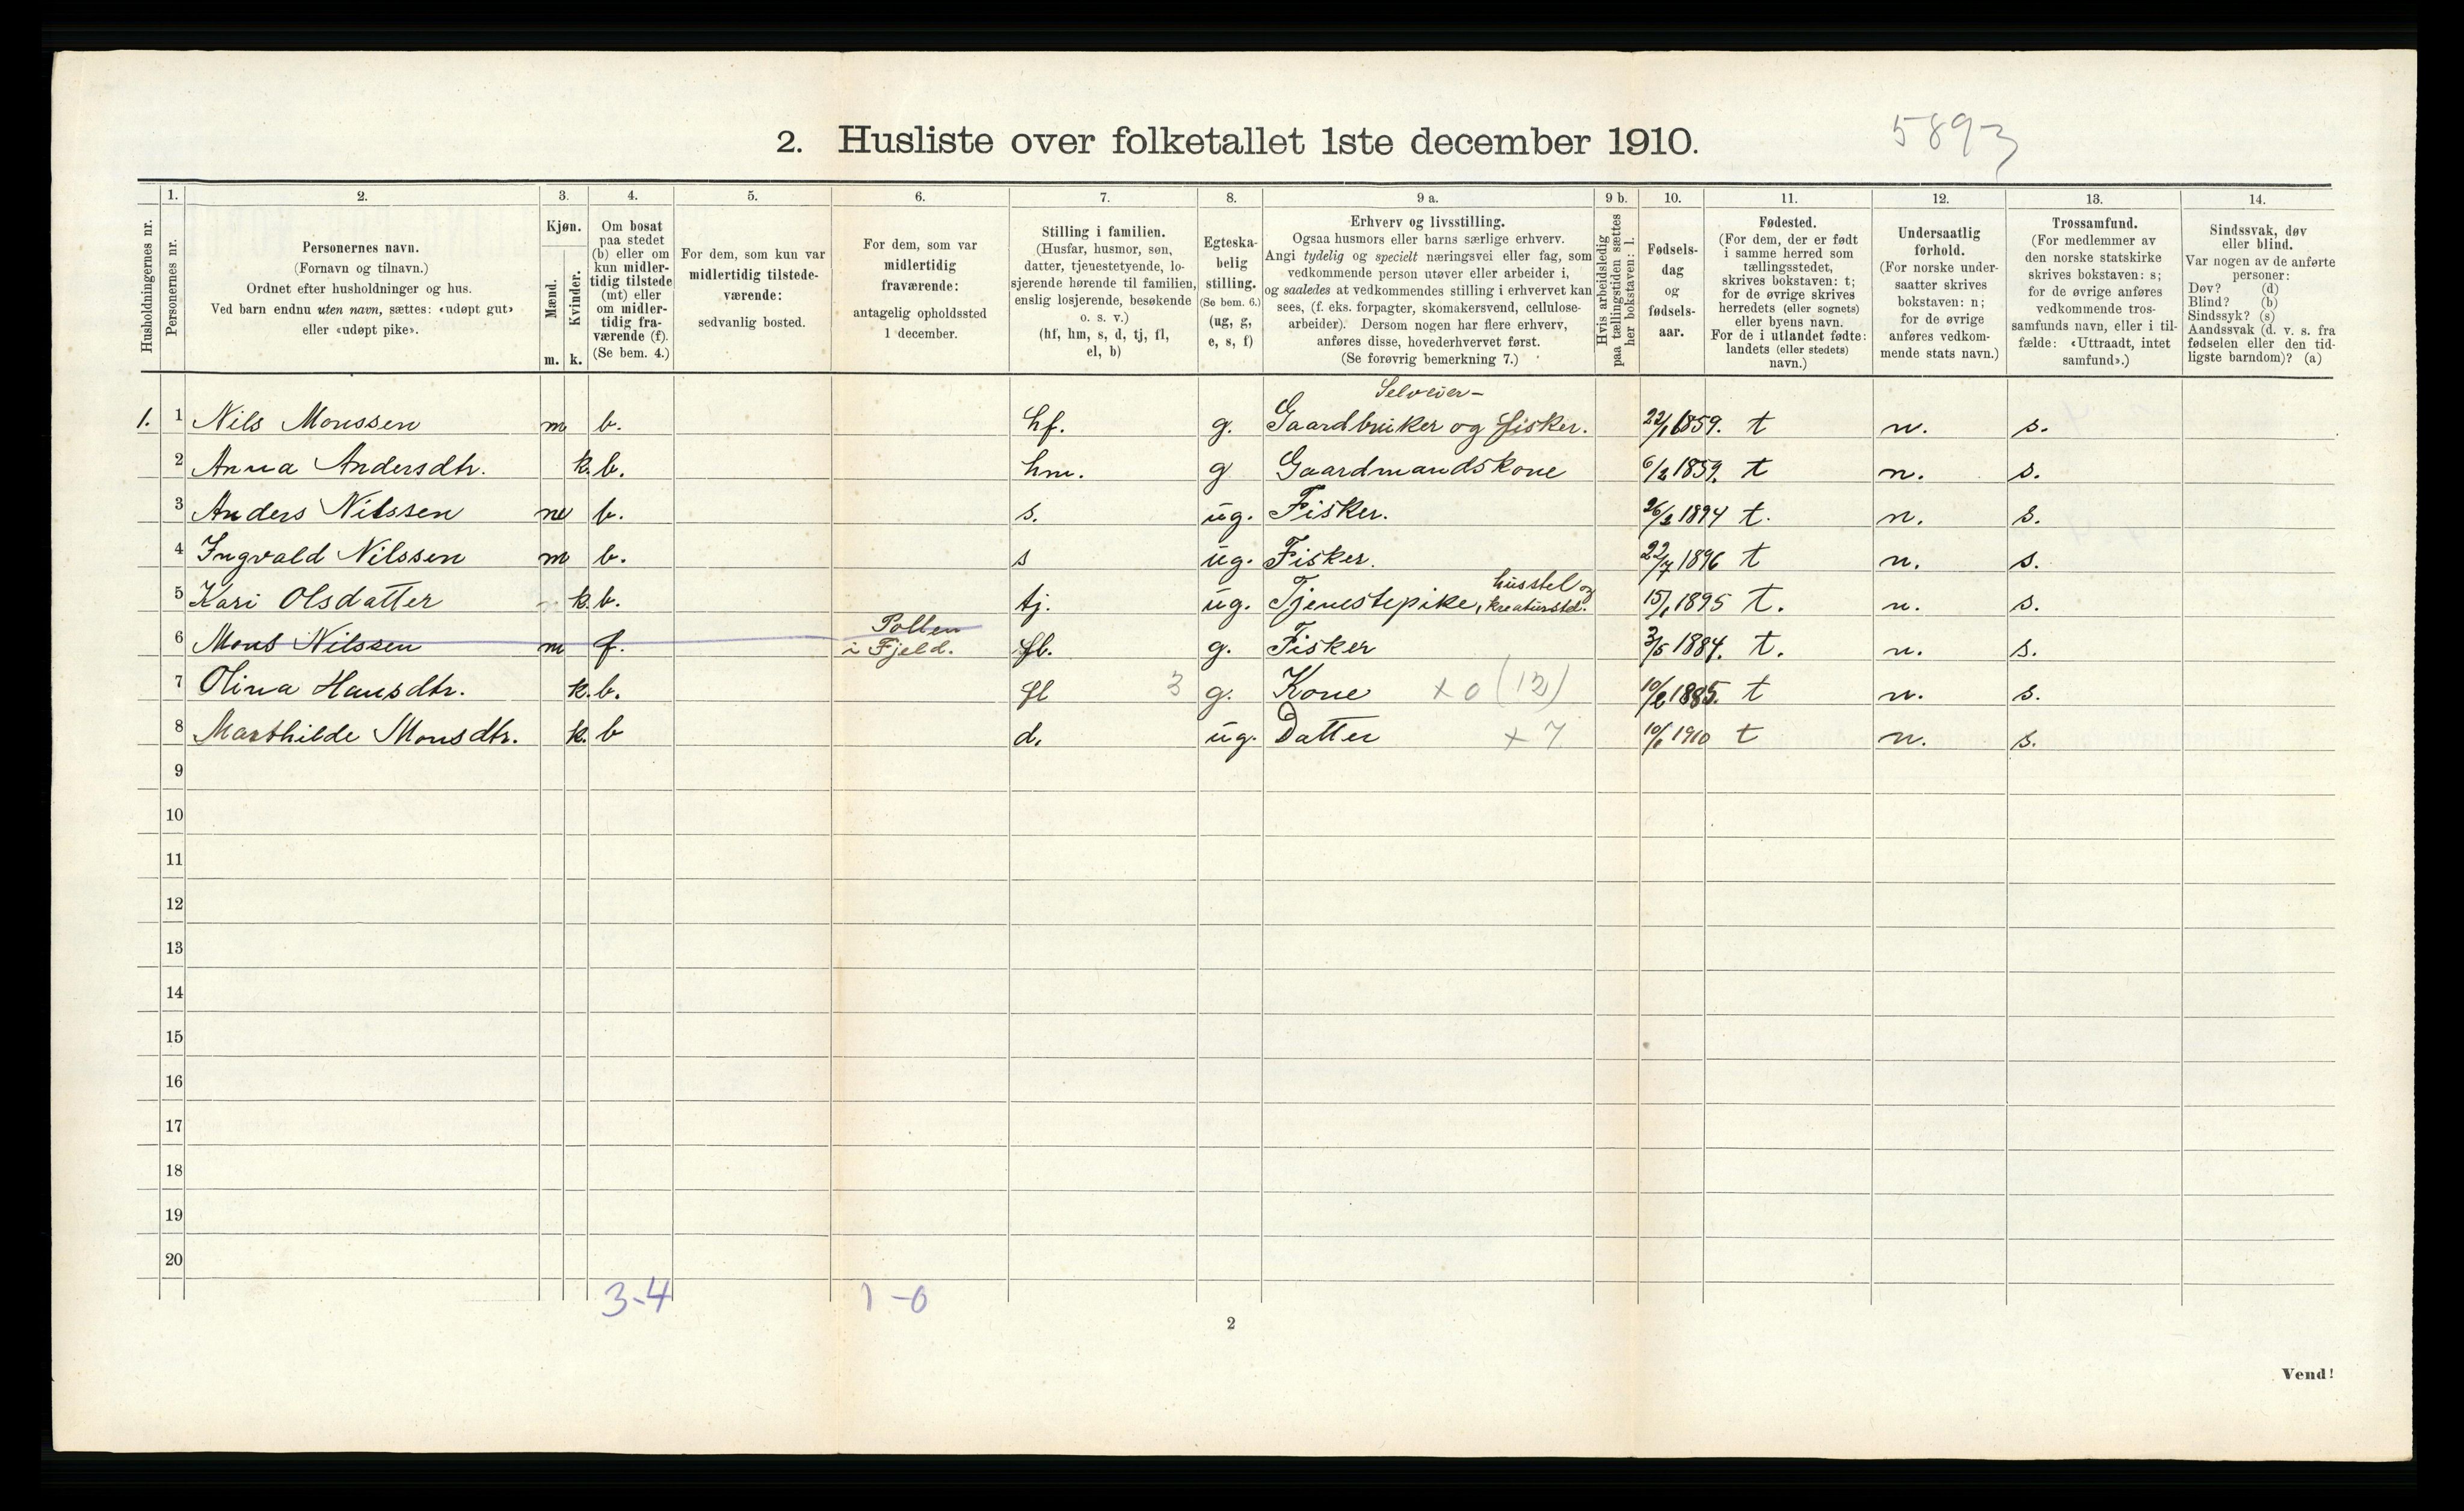 2. Husliste over folketallet 1ste december 1910.
5893
Husholdningernes nr.
1.
Personernes nr.
2.
Personernes navn.
(Fornavn og tilnavn.)
Ordnet efter husholdninger og hus.
Ved barn endnu uten navn, sættes: «udøpt gut»
eller «udøpt pike».
3.
Kjøn.
Mænd.
Kvinder.
m. k.
4.
Om bosat
paa stedet
(b) eller om
kun midler-
tidig tilstede
(mt) eller
om midler-
tidig fra-
værende (f).
(Se bem. 4.)
5.
For dem, som kun var
midlertidig tilstede-
værende:
sedvanlig bosted.
6.
For dem, som var
midlertidig
fraværende:
antagelig opholdssted
1 december.
7.
Stilling i familien.
(Husfar, husmor, søn,
datter, tjenestetyende, lo-
sjerende hørende til familien,
enslig losjerende, besøkende
o. s. v.)
(hf, hm, s, d, tj, fl,
el, b)
8.
Egteska-
belig
stilling.
(Se bem. 6.)
(ug, g,
e, s, f)
9 a.
Erhverv og livsstilling.
Ogsaa husmors eller barns særlige erhverv.
Angi tydelig og specielt næringsvei eller fag, som
vedkommende person utøver eller arbeider i,
og saaledes at vedkommendes stilling i erhvervet kan
sees, (f. eks. forpagter, skomakersvend, cellulose-
arbeider). Dersom nogen har flere erhverv,
anføres disse, hovederhvervet først.
(Se forøvrig bemerkning 7.)
9 b.
Hvis arbeidsledig
paa tællingstiden sættes
her bokstaven: l.
10.
Fødsels-
dag
og
fødsels-
aar.
11.
Fødested.
(For dem, der er født
i samme herred som
tællingsstedet,
skrives bokstaven: t;
for de øvrige skrives
herredets (eller sognets)
eller byens navn.
For de i utlandet fødte:
landets (eller stedets)
navn.)
12.
Undersaatlig
forhold.
(For norske under-
saatter skrives
bokstaven: n;
for de øvrige
anføres vedkom-
mende stats navn.)
13.
Trossamfund.
(For medlemmer av
den norske statskirke
skrives bokstaven: s;
for de øvrige anføres
vedkommende tros-
samfunds navn, eller i til-
fælde: «Uttraadt, intet
samfund».)
14.
Sindssvak, døv
eller blind.
Var nogen av de anførte
personer:
Døv? (d)
Blind? (b)
Sindssyk? (s)
Aandssvak (d. v. s. fra
fødselen eller den tid-
ligste barndom)? (a)
Selveier-
1. 1 Nils Monssen m b. hf. g. Gaardbruker og fisker. 1859. t n. s.
2 Anna Andersdtr. k. b. hm. g Gaardmandskone 6/2 1859. t n. s.
3 Anders Nilssen m b. s. ug. Fisker. 26/2 1894 t. n. s.
4 Ingvald Nilssen m b. s ug. Fisker. 22/7 1896 t n. s.
husstel og
5 Kari Olsdatter k. b. tj. ug. Tjenestepike, kreaturstel. 15/1 1895 t. n. s.
Pollen
6 Mons Nilssen m f. i Fjeld. fl. g. Fisker 3/5 1884. t. n. s.
7 Olina Hansdtr. k. b. fl 3 g. Kone x 0 (12) 10/2 1885. t n. s.
8 Marthilde Monsdtr. k. b d. ug. Datter x 7 1910 t n. s.
9
10
11
12
13
14
15
16
17
18
19
20
3-4 1-0
2
Vend!